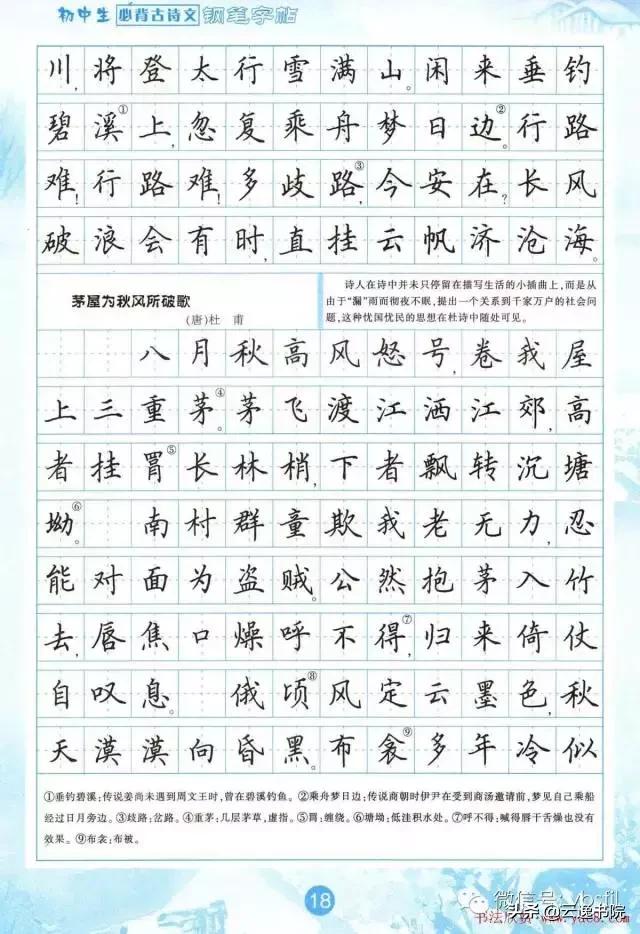 初中生必背古诗文钢笔字帖
川，将登太行雪满山。闲来垂钓
碧溪①上，忽复乘舟梦日边②。行路
难！行路难！多歧路③，今安在？长风
破浪会有时，直挂云帆济沧海。
茅屋为秋风所破歌
(唐)杜 甫
诗人在诗中并未只停留在描写生活的小插曲上，而是从
由于“漏”雨而彻夜不眠，提出一个关系到千家万户的社会问
题，这种忧国忧民的思想在杜诗中随处可见。
八月秋高风怒号，卷我屋
上三重茅④。茅飞渡江洒江郊，高
者挂罥⑤长林梢，下者飘转沉塘
坳⑥。 南村群童欺我老无力，忍
能对面为盗贼。公然抱茅入竹
去，唇焦口燥呼不得⑦，归来倚仗
自叹息。 俄顷⑧风定云墨色，秋
天漠漠向昏黑。布衾⑨多年冷似
①垂钓碧溪：传说姜尚未遇到周文王时，曾在碧溪钓鱼。②乘舟梦日边：传说商朝时伊尹在受到商汤邀请前，梦见自己乘船
经过日月旁边。③歧路：岔路。④重茅：几层茅草，虚指。⑤罥：缠绕。⑥塘坳：低洼积水处。⑦呼不得：喊得唇干舌燥也没有
效果。⑨布衾：布被。
18
微信号：ybsfjl
头条@云逸书院